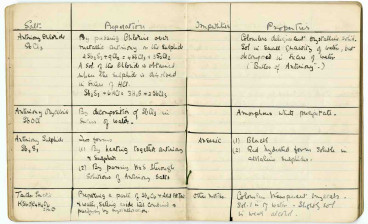 Salt. Preparation Impurities Properties
Antimony Chloride
SbCl3
By passing Chlorine over
metallic antimony or the Sulphide
2Sb2S3 + 9Cl2 = 4SbCl3 + 3S2Cl2
A sol of the Chloride is obtained
when the Sulphide is dissolved
in excess of HCl.
Sb2S3 + 6HCl = 3H2S + 2SbCl3
Colourless deliquescent crystalline solid.
Sol in small quantity of water, but
decomposed in excess of water
("Butter of Antimony".)
Antimony Oxychloride
SbOCl
By decomposition of SbCl3 in
excess of water.
Amorphous white precipitate.
Antimony Sulphide
Sb2S3
Two forms
(1) By heating together antimony
& Sulphur
(2) By passing H2S through
Solutions of Antimony Salts
Arsenic
(1) Black
(2) Red hydrated form soluble in
alkaline sulphides.
Tartar Emetic
Preparing a paste of Sb2O3 & Acid
water, setting aside
purifying by
Colourless transparent crystals.
Sol. in of water.
in alcohol.